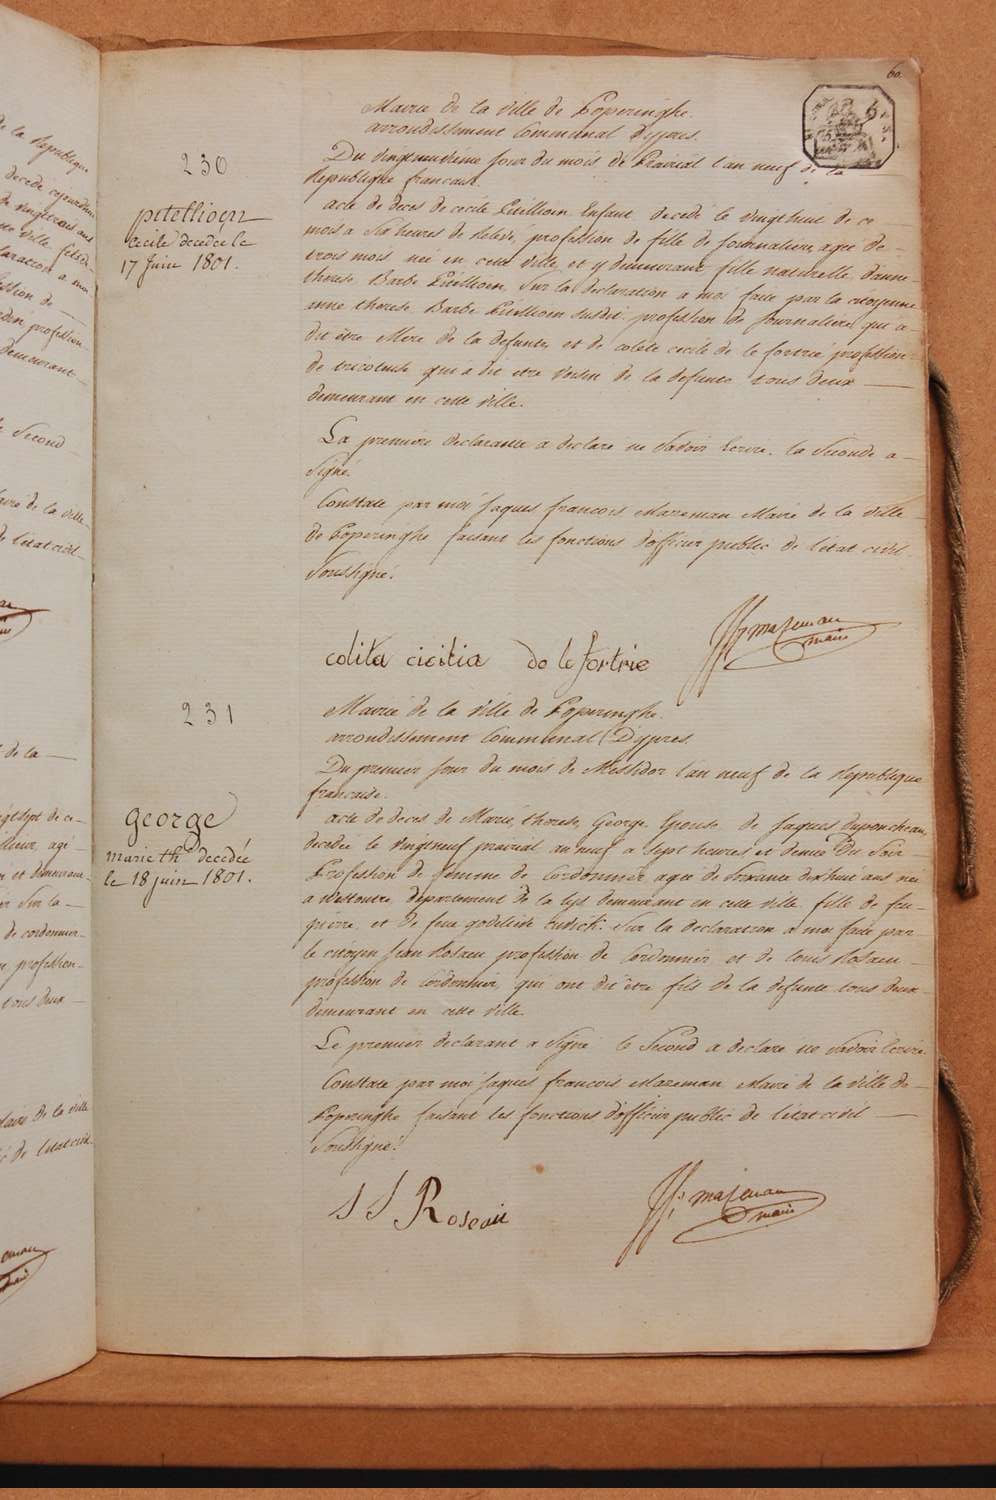 60.
Mairie de la ville de Poperinghe.
arrondissement Communal d'ypres.
230
Du vingtneuvieme jour du mois de Prairial l'an neuf de la
Republique francaise.
pitellioen
Cecile decedée le
17 Juin 1801.
acte de deces de cecile Pitellioen Enfant decedé le vingthuit de ce
mois a six heures de relevé, profession de fille de journaliere, agée de
trois mois née en cette ville et y demeurant fille naturelle d'anne
therese Barbe Pitellioen. Sur la declaration a moi faite par la citoyenne
anne therese Barbe Pitellioen susdit profession de journaliere, qui a
dit être Mere de la defunte, et de colete cecile de le fortrie profession
de tricoteuse qui a dit etre voisin de la defunte tous deux
demeurant en cette ville.
La premiere declarante a declaré ne savoir Ecrire. la Seconde a
Signé.
Constaté par moi jaques francois Mazeman Maire de la ville
de Poperinghe faisant les fonctions d'officier public de l'état civil
soussigné.
mazeman
maire
colita cicilia de le fortrie
231
Mairie de la ville de Poperinghe.
arrondissement Communal D'ypres.
Du premier jour du mois de Messidor l'an neuf de la Republique
francaise.
george
marie th. decedée
le 18 juin 1801.
acte de deces de Marie, therese, George Epouse de jaques duponcheau,
decedée le vingtneuf prairial an neuf a sept heures et demie Du soir
Profession de femme de Cordonnier agée de soixante dixhuit ans née
a Westoutre, departement de la lys demeurant en cette ville fille de feu
pierre et de feue godelieve Sur la declaration a moi faite par
le citoyen jean Rosaeu profession de Cordonnier et de louis Rosaeu
profession de cordonnier, qui ont dit être fils de la defunte tous deux
demeurant en cette ville.
Le premier declarant a signé le Second a declaré ne savoir Ecrire.
Constaté par moi jaques francois Mazeman Maire de la ville de
Poperinghe faisant les fonctions d'officier public de l'état civil
soussigné.
J J Roseau
mazeman
maire